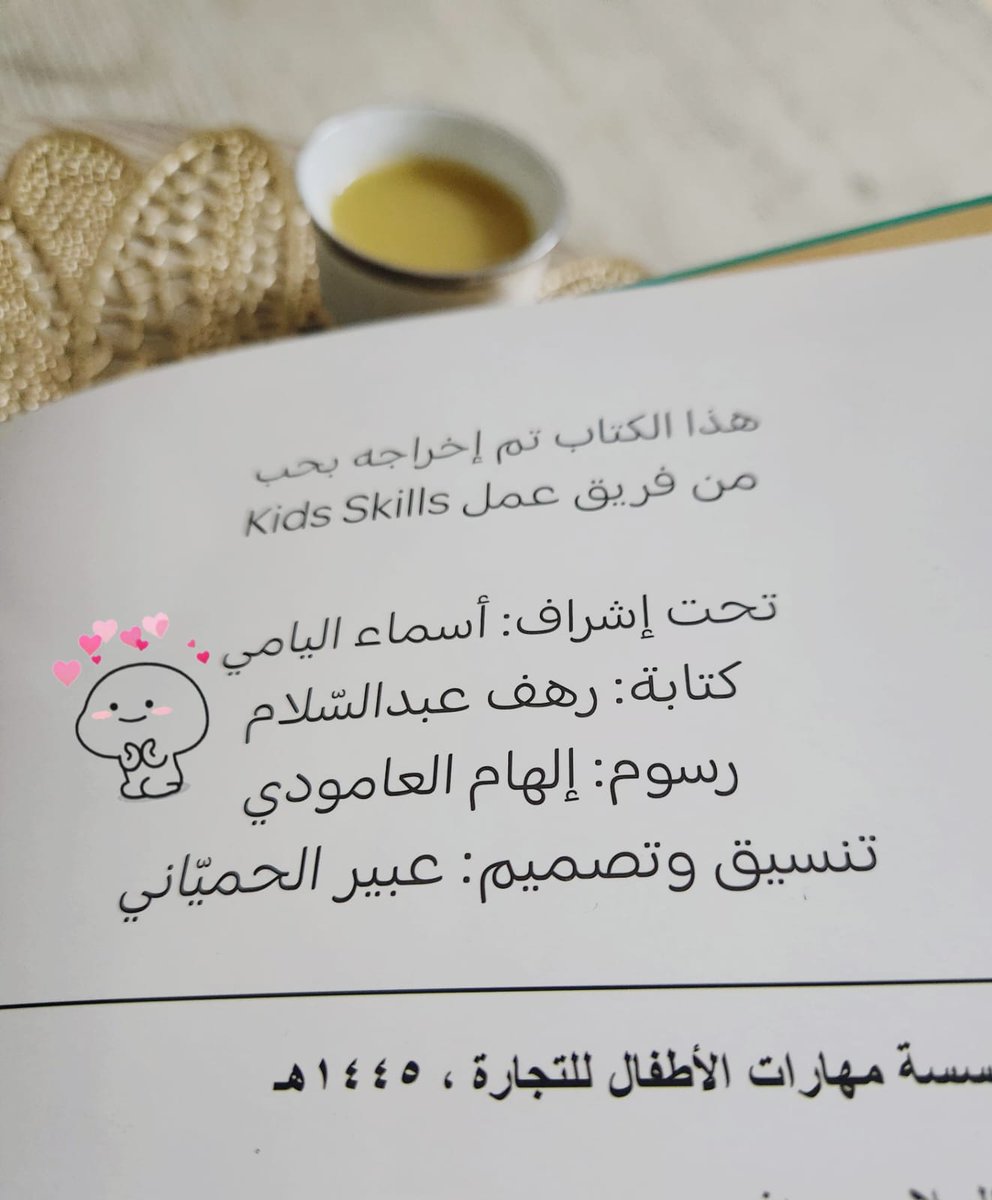 هذا الكتاب تم إخراجه بحب
من فريق عمل Kids Skills
تحت إشراف: أسماء اليامي
كتابة: رهف عبدالسّلام
رسوم: إلهام العامودي
تنسيق وتصميم: عبير الحميّاني
مهارات الأطفال للتجارة ، ١٤٤٥هـ